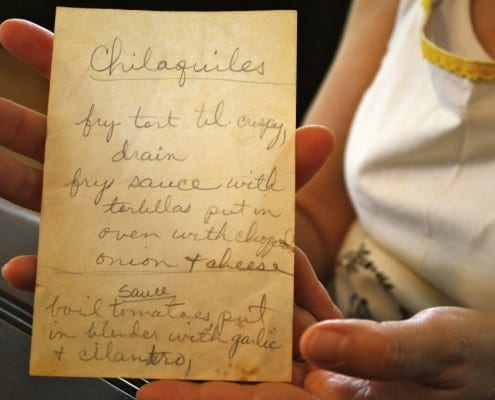 Chilaquiles
fry tort. til crispy,
drain
fry sauce with
tortillas put in
oven with chopped
onion + cheese
sauce
boil tomatoes put
in blender with garlic
+ cilantro,